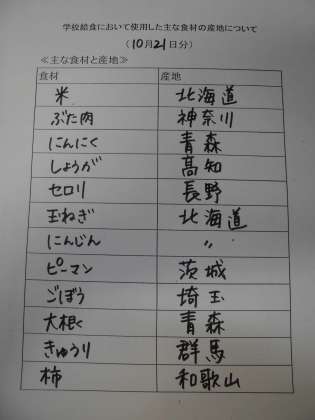 学校給食において使用した主な食材の産地について
(10月21日分)
≪主な食材と産地≫
食材 産地
米 北海道
ぶた肉 神奈川
にんにく 青森
しょうが 高知
セロリ 長野
玉ねぎ 北海道
にんじん 〃
ピーマン 茨城
ごぼう 埼玉
大根 青森
きゅうり 群馬
柿 和歌山